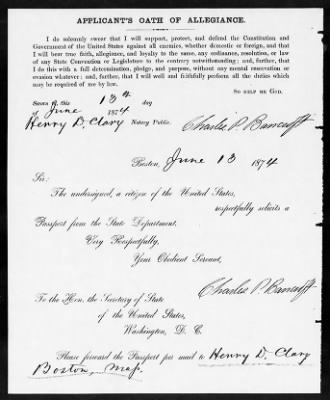 APPLICANT'S OATH OF ALLEGIANCE.
I do solemnly swear that I will support, protect, and defend the Constitution and
Government of the United States against all enemies, whether domestic or foreign, and that
I will bear true faith, allegiance, and loyalty to the same, any ordinance, resolution, or law
of any State Convention or Legislature to the contrary notwithstanding; and, further, that
I do this with a full determination, pledge, and purpose, without any mental reservation or
evasion whatever; and, further, that I will well and faithfully perform all the duties which
may be required of me by law.
SO HELP ME GOD.
Sworn to this 13th day
of June 1874
Henry D. Clary Notary Public. Charles P. Bancroft
Boston, June 13 1874
Sir:
The undersigned, a citizen of the United States,
respectfully solicits a
Passport from the State Department.
Very Respectfully,
Your Obedient Servant,
Charles P. Bancroft
To the Hon. the Secretary of State
of the United States,
Washington, D. C.
Please forward the Passport per mail to Henry D. Clary
Boston, Mass.